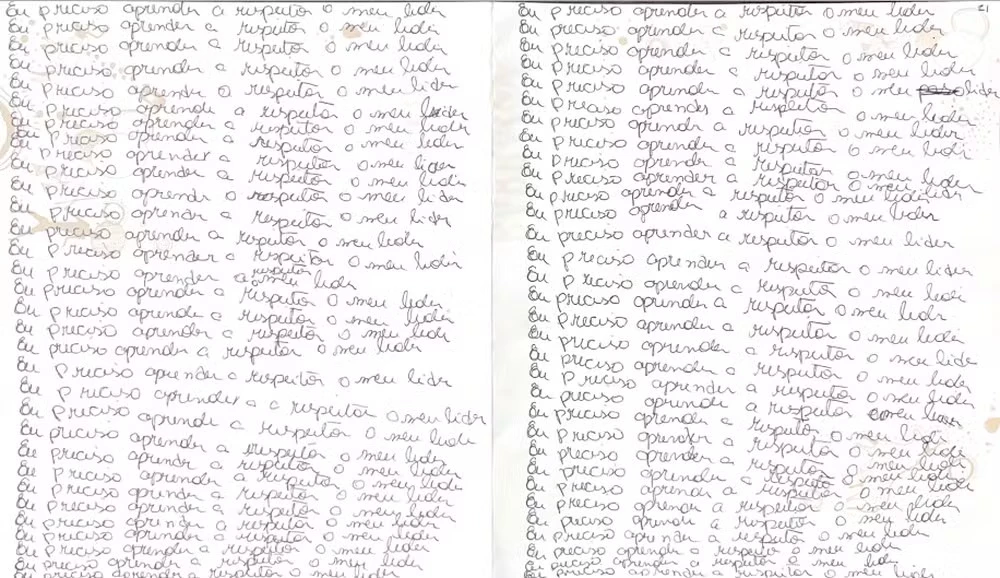 Eu preciso aprender a respeitar o meu lider
Eu preciso aprender a respeitar o meu lider
Eu preciso aprender a respeitar o meu lider
Eu preciso aprender a respeitar o meu lider
Eu preciso aprender a respeitar o meu lider
Eu preciso aprender a respeitar o meu lider
Eu preciso aprender a respeitar o meu lider
Eu preciso aprender a respeitar o meu lider
Eu preciso aprender a respeitar o meu lider
Eu preciso aprender a respeitar o meu lider
Eu preciso aprender a respeitar o meu lider
Eu preciso aprender a respeitar o meu lider
Eu preciso aprender a respeitar o meu lider
Eu preciso aprender a respeitar o meu lider
Eu preciso aprender a respeitar o meu lider
Eu preciso aprender a respeitar o meu lider
Eu preciso aprender a respeitar o meu lider
Eu preciso aprender a respeitar o meu lider
Eu preciso aprender a respeitar o meu lider
Eu preciso aprender a respeitar o meu lider
Eu preciso aprender a respeitar o meu lider
Eu preciso aprender a respeitar o meu lider
Eu preciso aprender a respeitar o meu lider
Eu preciso aprender a respeitar o meu lider
Eu preciso aprender a respeitar o meu lider
Eu preciso aprender a respeitar o meu lider
Eu preciso aprender a respeitar o meu lider
Eu preciso aprender a respeitar o meu lider
Eu preciso aprender a respeitar o meu lider
Eu preciso aprender a respeitar o meu lider
Eu preciso aprender a respeitar o meu lider
Eu preciso aprender a respeitar o meu lider
21
Eu preciso aprender a respeitar o meu lider
Eu preciso aprender a respeitar o meu lider
Eu preciso aprender a respeitar o meu lider
Eu preciso aprender a respeitar o meu lider
Eu preciso aprender a respeitar o meu lider
Eu preciso aprender a respeitar o meu lider
Eu preciso aprender a respeitar o meu lider
Eu preciso aprender a respeitar o meu lider
Eu preciso aprender a respeitar o meu lider
Eu preciso aprender a respeitar o meu lider
Eu preciso aprender a respeitar o meu lider
Eu preciso aprender a respeitar o meu lider
Eu preciso aprender a respeitar o meu lider
Eu preciso aprender a respeitar o meu lider
Eu preciso aprender a respeitar o meu lider
Eu preciso aprender a respeitar o meu lider
Eu preciso aprender a respeitar o meu lider
Eu preciso aprender a respeitar o meu lider
Eu preciso aprender a respeitar o meu lider
Eu preciso aprender a respeitar o meu lider
Eu preciso aprender a respeitar o meu lider
Eu preciso aprender a respeitar o meu lider
Eu preciso aprender a respeitar o meu lider
Eu preciso aprender a respeitar o meu lider
Eu preciso aprender a respeitar o meu lider
Eu preciso aprender a respeitar o meu lider
Eu preciso aprender a respeitar o meu lider
Eu preciso aprender a respeitar o meu lider
Eu preciso aprender a respeitar o meu lider
Eu preciso aprender a respeitar o meu lider
Eu preciso aprender a respeitar o meu lider